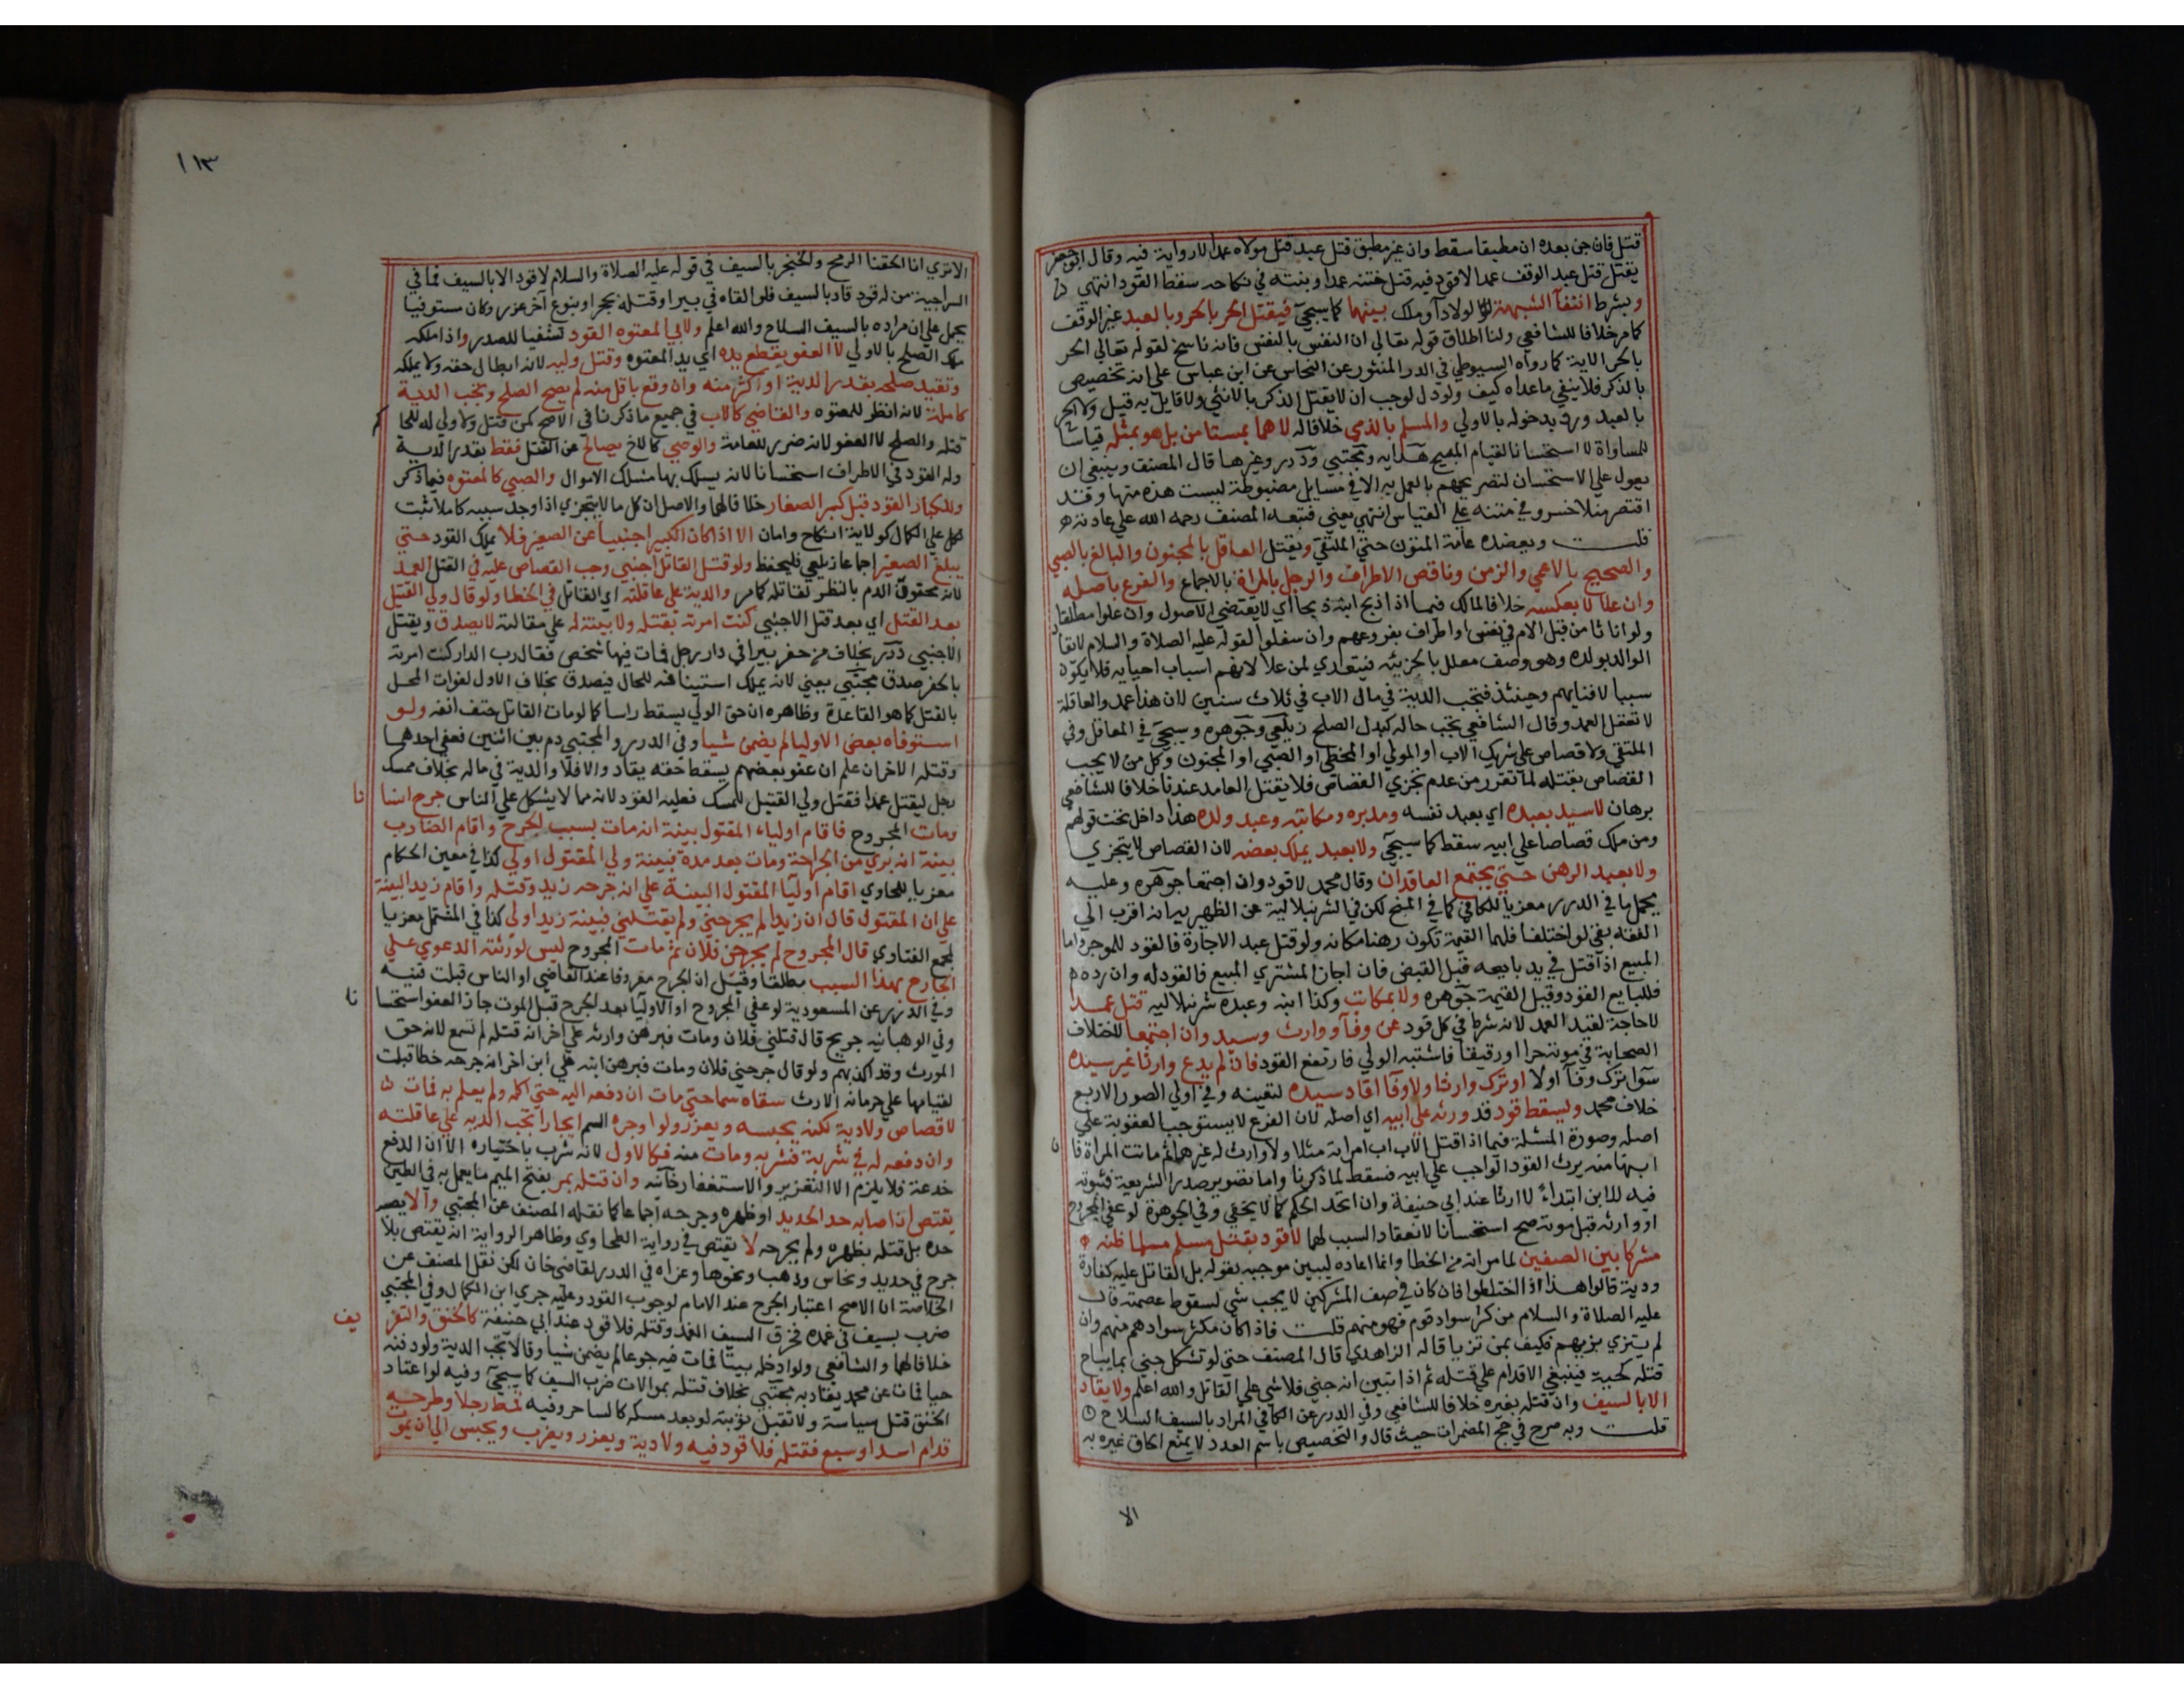 قتل فان جن بعده ان مطبقا سقط وان غير مطبق قتل عبد قتل مولاه عمدا لا رواية فيه وقال ابو جعفر
يقتل قتل عبد الوقف عمدا لا قود فيه قتل ختنه عمدا وبنته في نكاحه سقط القود انتهى
وبشرط انتفآ الشبهة كولاد او ملك بينهما كما سيجئ فيقتل الحر بالحر وبالعبد غير الوقف
كما مر خلافا للشافعي ولنا اطلاق قوله تعالي ان النفس بالنفس فانه ناسخ لقوله تعالي الحر
بالحر الاية كما رواه السيوطي في الدر المنثور عن النحاس عن ابن عباس علي انه تخصيص
بالذكر فلا ينفي ما عداه كيف ولو دل لوجب ان لا يقتل الذكر بالانثي ولا قايل به قيل ولا الحر
بالعبد ورد بدخوله بالاولي والمسلم بالذمي خلافا له لا هما بمستامن بل هو بمثله قياسا
للمساواة لا استحسانا لقيام المبيح هدايه ومجتبي ودرر وغيرها قال المصنف وينبغي ان
يعول علي الاستحسان لتصريحهم بالعمل به الا في مسايل مضبوطة ليست هذه منها وقد
اقتصر منلا خسرو في متنه علي القياس انتهي يعني فتبعه المصنف رحمه الله علي عادته
قلت ويعضده عامة المتون حتي الملتقي ويقتل العاقل بالمجنون والبالغ بالصبي
والصحيح بالاعمي والزمن وناقص الاطراف والرجل بالمراة بالاجماع والفرع باصله
وان علا لا بعكسه خلافا لمالك فيما اذا ذبح ابنه ذبحا اي لا يقتضي الاصول وان علوا مطلقا
ولو اناثا من قبل الام في نفس او اطراف بفروعهم وان سفلوا لقوله عليه الصلاة والسلام لا يقاد
الوالد بولده وهو وصف معلل بالجزئيه فيتعدي لمن علا لانهم اسباب احيايه فلا يكون
سببا لافنايهم وحينئذ فتجب الدية في مال الاب في ثلاث سنين لان هذا عمد والعاقلة
لا تعقل العمد وقال الشافعي تجب حاله كبدل الصلح زيلعي وجوهره وسيجئ في المعاقل وفي
الملتقي ولا قصاص علي شريك الاب او المولي او المخطي او الصبي او المجنون وكل من لا يجب
القصاص بقتله لما تقرر من عدم تجزي القصاص فلا يقتل العامد عندنا خلافا للشافعي
برهان لا سيد بعبده اي بعبد نفسه ومدبره ومكاتبه وعبد ولده هذا داخل تحت قولهم
ومن ملك قصاصا علي ابيه سقط كما سيجئ ولا بعبد يملك بعضه لان القصاص لا يتجزي
ولا بعبد الرهن حتي يجتمع العاقدان وقال محمد لا قود وان اجتمعا جوهره وعليه
يحمل ما في الدرر معزيا للكافي كما في المنح لكن في الشرنبلالية عن الظهيريه انه اقرب الي
الفقه بقي لو اختلفا فلهما القيمة تكون رهنا مكانه ولو قتل عبد الاجارة فالقود للموجر واما
المبيع اذا قتل في يد بايعه قبل القبض فان اجاز المشتري المبيع فالقود له وان رده
فللبايع القود وقيل القيمة جوهره ولا بمكاتب وكذا ابنه وعبده شرنبلاليه قتل عمدا
لا حاجة لقيد العمد لانه شرط في كل قود عن وفآ ووارث وسيد وان اجتمعا لاختلاف
الصحابة في موته حرا او رقيقا فاشتبه الولي فارتفع القود فان لم يدع وارثا غير سيده
سوآ ترك وفآ اولا او ترك وارثا ولا وفآ اقاد سيده لتعينه وفي اولي الصور الاربع
خلاف محمد ويسقط قود قد ورثه علي ابيه اي اصله لان الفرع لا يستوجب العقوبة علي
اصله وصورة المسئلة فيما اذا قتل الاب اب امراته مثلا ولا وارث له غيرها ثم ماتت المراة فا
ابنها منه يرث القود الواجب علي ابيه فسقط لما ذكرنا واما تصوير صدر الشريعة فثبوته
فيه للابن ابتداء لا ارثا عند ابي حنيفة وان اتحد الحكم كما لا يخفي وفي الجوهرة لو عفي المجروح
او وارثه قبل موته صح استحسانا لانعقاد السبب لهما لا قود بقتل مسلم مسلما ظنه
مشركا بين الصفين لما مر انه من الخطا وانما اعاده ليبين موجبه بقوله بل القاتل عليه كفارة
ودية قالوا هذا اذا اختلطوا فان كان في صف المشركين لا يجب شي لسقوط عصمته قال
عليه الصلاة والسلام من كثر سواد قوم فهو منهم قلت فاذا كان مكثر سوادهم منهم وان
لم يتزي بزيهم فكيف بمن تزيا قاله الزاهدي قال المصنف حتي لو تشكل جني بما يباح
قتله كحية فينبغي الاقدام علي قتله ثم اذا تبين انه جني فلا شي علي القاتل والله اعلم ولا يقاد
الا بالسيف وان قتله بغيره خلافا للشافعي وفي الدرر عن الكافي المراد بالسيف السلاح
قلت وبه صرح في حج المضمرات حيث قال والتخصيص باسم العدد لا يمنع الحاق غيره به
الا
١١٣
الا تري انا الحقنا الرمح والخنجر بالسيف في قوله عليه الصلاة والسلام لا قود الا بالسيف فما في
السراجية من له قود قاد بالسيف فلو القاه في بير او قتله بحجر او بنوع آخر عزر وكان مستوفيا
يحمل علي ان مراده بالسيف السلاح والله اعلم ولابي المعتوه القود تشفيا للصدر واذا ملكه
ملك الصلح بالاولي لا العفو بقطع يده اي يد المعتوه وقتل وليه لانه ابطال حقه ولا يملكه
وتقيد صلحه بقدر الدية او اكثر منه وان وقع باقل منه لم يصح الصلح وتجب الدية
كاملة لانه انظر للمعتوه والقاضي كالاب في جميع ما ذكرنا في الاصح كمن قتل ولا ولي له للحاكم
قتله والصلح لا العفو لانه ضرر للعامة والوصي كالاخ يصالح عن القتل فقط بقدر الدية
وله القود في الاطراف استحسانا لانه يسلك بها مسلك الاموال والصبي كالمعتوه فيما ذكر
وللكبار القود قبل كبر الصغار خلافا لهما والاصل ان كل ما لا يتجزي اذا وجد سببه كاملا ثبت
لكل علي الكمال كولاية انكاح وامان الا اذا كان الكبير اجنبيا عن الصغير فلا يملك القود حتي
يبلغ الصغير اجماعا زيلعي فليحفظ ولو قتل القاتل اجنبي وجب القصاص عليه في القتل العمد
لانه محقون الدم بالنظر لقاتله كما مر والدية علي عاقلته اي القاتل في الخطا ولو قال ولي القتيل
بعد القتل اي بعد قتل الاجنبي كنت امرته بقتله ولا بينة له علي مقالته لا يصدق ويقتل
الاجنبي درر بخلاف من حفر بيرا في دار رجل فمات فيها شخص فقال رب الدار كنت امرته
بالحفر صدق مجتبي يعني لانه يملك استينافه للحال فيصدق بخلاف الاول لفوات المحل
بالقتل كما هو القاعدة وظاهره ان حق الولي يسقط راسا كما لو مات القاتل حتف انفه ولو
استوفاه بعض الاوليا لم يضمن شيا وفي الدرر والمجتبي دم بين اثنين فعفي احدهما
وقتله الاخر ان علم ان عفو بعضهم يسقط حقه يقاد والا فلا والدية في ماله بخلاف ممسك
رجل ليقتل عمدا فقتل ولي القتيل الممسك فعليه القود لانه مما لا يشكل علي الناس جرح انسانا
ومات المجروح فاقام اولياء المقتول بينة انه مات بسبب الجرح واقام الضارب
بينة انه بري من الجراحة ومات بعد مدة فبينة ولي المقتول اولي كذا في معين الحكام
معزيا للحاوي اقام اوليآ المقتول البينة علي انه جرحه زيد وقتله واقام زيد البينة
علي ان المقتول قال ان زيدا لم يجرحني ولم يقتلني فبينة زيد اولي كذا في المشتمل معزيا
لمجمع الفتاوي قال المجروح لم يجرحني فلان ثم مات المجروح ليس لورثته الدعوي علي
الجارح بهذا السبب مطلقا وقيل ان الجرح معروفا عند القاضي او الناس قبلت قنيه
وفي الدرر عن المسعودية لو عفي المجروح او الاوليآ بعد الجرح قبل الموت جاز العفو استحسانا
وفي الوهبانيه جريح قال قتلني فلان ومات فبرهن وارثه علي اخر انه قتله لم تسمع لانه حق
المورث وقد اكذبهم ولو قال جرحني فلان ومات فبرهن ابنه علي ابن اخر انه جرحه خطا قبلت
لقيامها علي حرمانه الارث سقاه سما حتي مات ان دفعه اليه حتي اكله ولم يعلم به فمات
لا قصاص ولا دية لكنه يحبسه ويعزر ولو اوجره السم ايجارا تجب الديه علي عاقلته
وان دفعه له في شربة فشربه ومات منه فكالاول لانه شرب باختياره الا ان الدفع
خدعة فلا يلزم الا التعزير والاستغفار خانيه وان قتله بمر بفتح الميم ما يعمل به في الطين
يقتص ان اصابه حد الحديد او ظهره وجرحه اجماعا كما نقله المصنف عن المجتبي والا يصبه
حده بل قتله بظهره ولم يجرحه لا يقتص في رواية الطحاوي وظاهر الرواية انه يقتص بلا
جرح في حديد ونحاس وذهب ونحوها وعزاه في الدرر لقاضي خان لكن نقل المصنف عن
الخلاصة ان الاصح اعتبار الجرح عند الامام لوجوب القود وعليه جري ابن الكمال وفي المجتبي
ضرب بسيف في غمده فخرق السيف الغمد وقتله فلا قود عند ابي حنيفة كالخنق والتغريق
خلافا لهما والشافعي ولو ادخله بيتا فمات فيه جوعا لم يضمن شيا وقالا تجب الدية ولو دفنه
حيا فمات عن محمد يقاد به مجتبي بخلاف قتله بموالات ضرب السيف كما سيجئ وفيه لو اعتاد
الخنق قتل سياسة ولا تقبل توبته لو بعد مسكه كالساحر وفيه قمط رجلا وطرحه
قدام اسد او سبع فقتله فلا قود فيه ولا دية ويعزر ويضرب ويحبس الي ان يموت